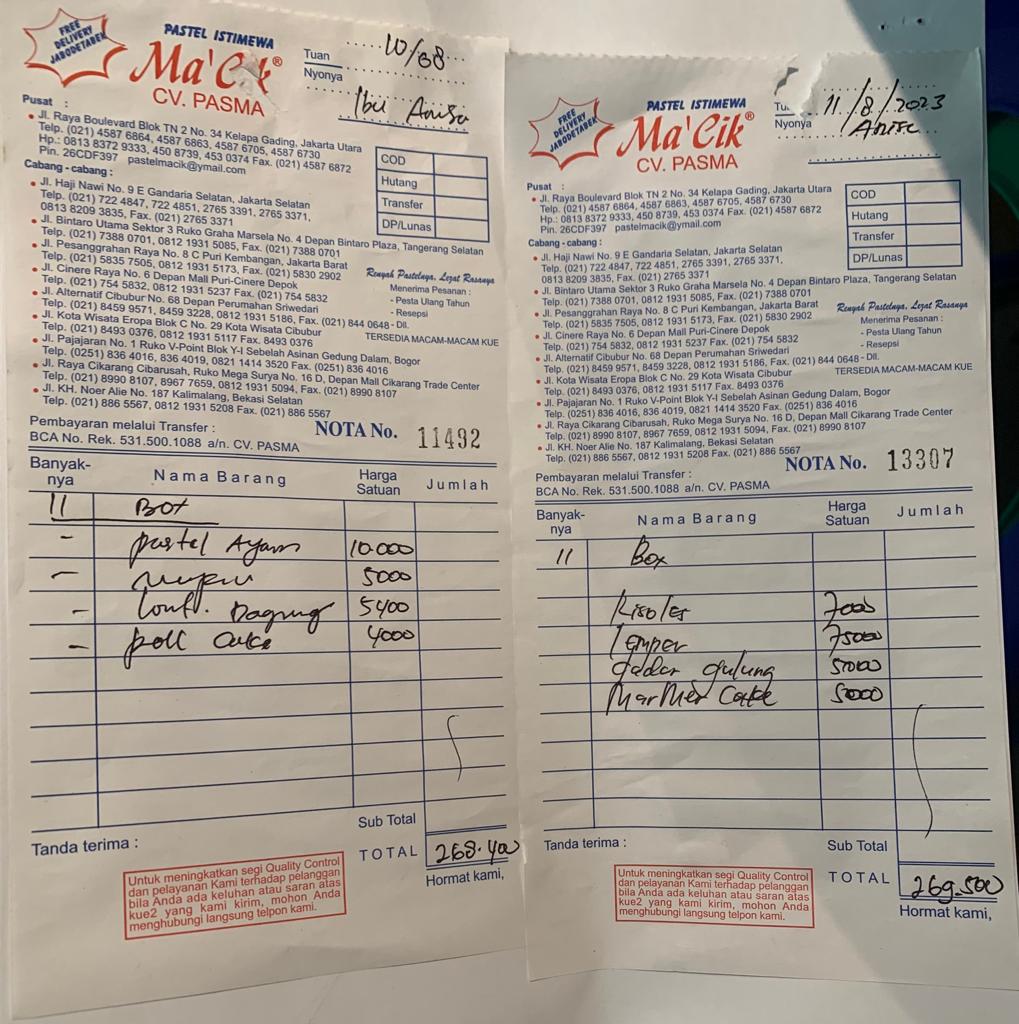 FREE
DELIVERY
JABODETABEK
PASTEL ISTIMEWA
Ma'Cik®
CV. PASMA
Tuan
10/08
Nyonya
Ibu Anisa
Pusat :
• Jl. Raya Boulevard Blok TN 2 No. 34 Kelapa Gading, Jakarta Utara
Telp. (021) 4587 6864, 4587 6863, 4587 6705, 4587 6730
Hp.: 0813 8372 9333, 450 8739, 453 0374 Fax. (021) 4587 6872
Pin. 26CDF397 pastelmacik@ymail.com
COD
Hutang
Transfer
DP/Lunas
Cabang - cabang :
• Jl. Haji Nawi No. 9 E Gandaria Selatan, Jakarta Selatan
Telp. (021) 722 4847, 722 4851, 2765 3391, 2765 3371,
0813 8209 3835, Fax. (021) 2765 3371
• Jl. Bintaro Utama Sektor 3 Ruko Graha Marsela No. 4 Depan Bintaro Plaza, Tangerang Selatan
Telp. (021) 7388 0701, 0812 1931 5085, Fax. (021) 7388 0701
• Jl. Pesanggrahan Raya No. 8 C Puri Kembangan, Jakarta Barat
Telp. (021) 5835 7505, 0812 1931 5173, Fax. (021) 5830 2902
• Jl. Cinere Raya No. 6 Depan Mall Puri-Cinere Depok
Telp. (021) 754 5832, 0812 1931 5237 Fax. (021) 754 5832
• Jl. Alternatif Cibubur No. 68 Depan Perumahan Sriwedari
Telp. (021) 8459 9571, 8459 3228, 0812 1931 5186, Fax. (021) 844 0648
• Jl. Kota Wisata Eropa Blok C No. 29 Kota Wisata Cibubur
Telp. (021) 8493 0376, 0812 1931 5117 Fax. 8493 0376
• Jl. Pajajaran No. 1 Ruko V-Point Blok Y-I Sebelah Asinan Gedung Dalam, Bogor
Telp. (0251) 836 4016, 836 4019, 0821 1414 3520 Fax. (0251) 836 4016
• Jl. Raya Cikarang Cibarusah, Ruko Mega Surya No. 16 D, Depan Mall Cikarang Trade Center
Telp. (021) 8990 8107, 8967 7659, 0812 1931 5094, Fax. (021) 8990 8107
• JL. KH. Noer Alie No. 187 Kalimalang, Bekasi Selatan
Telp. (021) 886 5567, 0812 1931 5208 Fax. (021) 886 5567
Renyah Pastelnya, Lezat Rasanya
Menerima Pesanan :
- Pesta Ulang Tahun
- Resepsi
- Dll.
TERSEDIA MACAM-MACAM KUE
Pembayaran melalui Transfer :
BCA No. Rek. 531.500.1088 a/n. CV. PASMA
NOTA No. 11492
Banyak-
nya
Nama Barang
Harga
Satuan
Jumlah
11 Box
- pastel Ayam 10.000
- 5000
- Lont. Daging 5400
- poll Cake 4000
Sub Total
Tanda terima :
TOTAL 268.400
Hormat kami,
Untuk meningkatkan segi Quality Control
dan pelayanan Kami terhadap pelanggan
bila Anda ada keluhan atau saran atas
kue2 yang kami kirim, mohon Anda
menghubungi langsung telpon kami.
FREE
DELIVERY
JABODETABEK
PASTEL ISTIMEWA
Ma'Cik®
CV. PASMA
11/8/2023
Nyonya
Pusat :
• Jl. Raya Boulevard Blok TN 2 No. 34 Kelapa Gading, Jakarta Utara
Telp. (021) 4587 6864, 4587 6863, 4587 6705, 4587 6730
Hp.: 0813 8372 9333, 450 8739, 453 0374 Fax. (021) 4587 6872
Pin. 26CDF397 pastelmacik@ymail.com
COD
Hutang
Transfer
DP/Lunas
Cabang - cabang :
• Jl. Haji Nawi No. 9 E Gandaria Selatan, Jakarta Selatan
Telp. (021) 722 4847, 722 4851, 2765 3391, 2765 3371,
0813 8209 3835, Fax. (021) 2765 3371
• Jl. Bintaro Utama Sektor 3 Ruko Graha Marsela No. 4 Depan Bintaro Plaza, Tangerang Selatan
Telp. (021) 7388 0701, 0812 1931 5085, Fax. (021) 7388 0701
• Jl. Pesanggrahan Raya No. 8 C Puri Kembangan, Jakarta Barat
Telp. (021) 5835 7505, 0812 1931 5173, Fax. (021) 5830 2902
• Jl. Cinere Raya No. 6 Depan Mall Puri-Cinere Depok
Telp. (021) 754 5832, 0812 1931 5237 Fax. (021) 754 5832
• Jl. Alternatif Cibubur No. 68 Depan Perumahan Sriwedari
Telp. (021) 8459 9571, 8459 3228, 0812 1931 5186, Fax. (021) 844 0648
• Jl. Kota Wisata Eropa Blok C No. 29 Kota Wisata Cibubur
Telp. (021) 8493 0376, 0812 1931 5117 Fax. 8493 0376
• Jl. Pajajaran No. 1 Ruko V-Point Blok Y-I Sebelah Asinan Gedung Dalam, Bogor
Telp. (0251) 836 4016, 836 4019, 0821 1414 3520 Fax. (0251) 836 4016
• Jl. Raya Cikarang Cibarusah, Ruko Mega Surya No. 16 D, Depan Mall Cikarang Trade Center
Telp. (021) 8990 8107, 8967 7659, 0812 1931 5094, Fax. (021) 8990 8107
• JL. KH. Noer Alie No. 187 Kalimalang, Bekasi Selatan
Telp. (021) 886 5567, 0812 1931 5208 Fax. (021) 886 5567
Renyah Pastelnya, Lezat Rasanya
Menerima Pesanan :
- Pesta Ulang Tahun
- Resepsi
- Dll.
TERSEDIA MACAM-MACAM KUE
NOTA No. 13307
Pembayaran melalui Transfer :
BCA No. Rek. 531.500.1088 a/n. CV. PASMA
Banyak-
nya
Nama Barang
Harga
Satuan
Jumlah
11 Box
Risoles 7000
Lemper 7500
dadar gulung 5000
MarMer Cake 5000
Sub Total
Tanda terima :
TOTAL 269.500
Hormat kami,
Untuk meningkatkan segi Quality Control
dan pelayanan Kami terhadap pelanggan
bila Anda ada keluhan atau saran atas
kue2 yang kami kirim, mohon Anda
menghubungi langsung telpon kami.